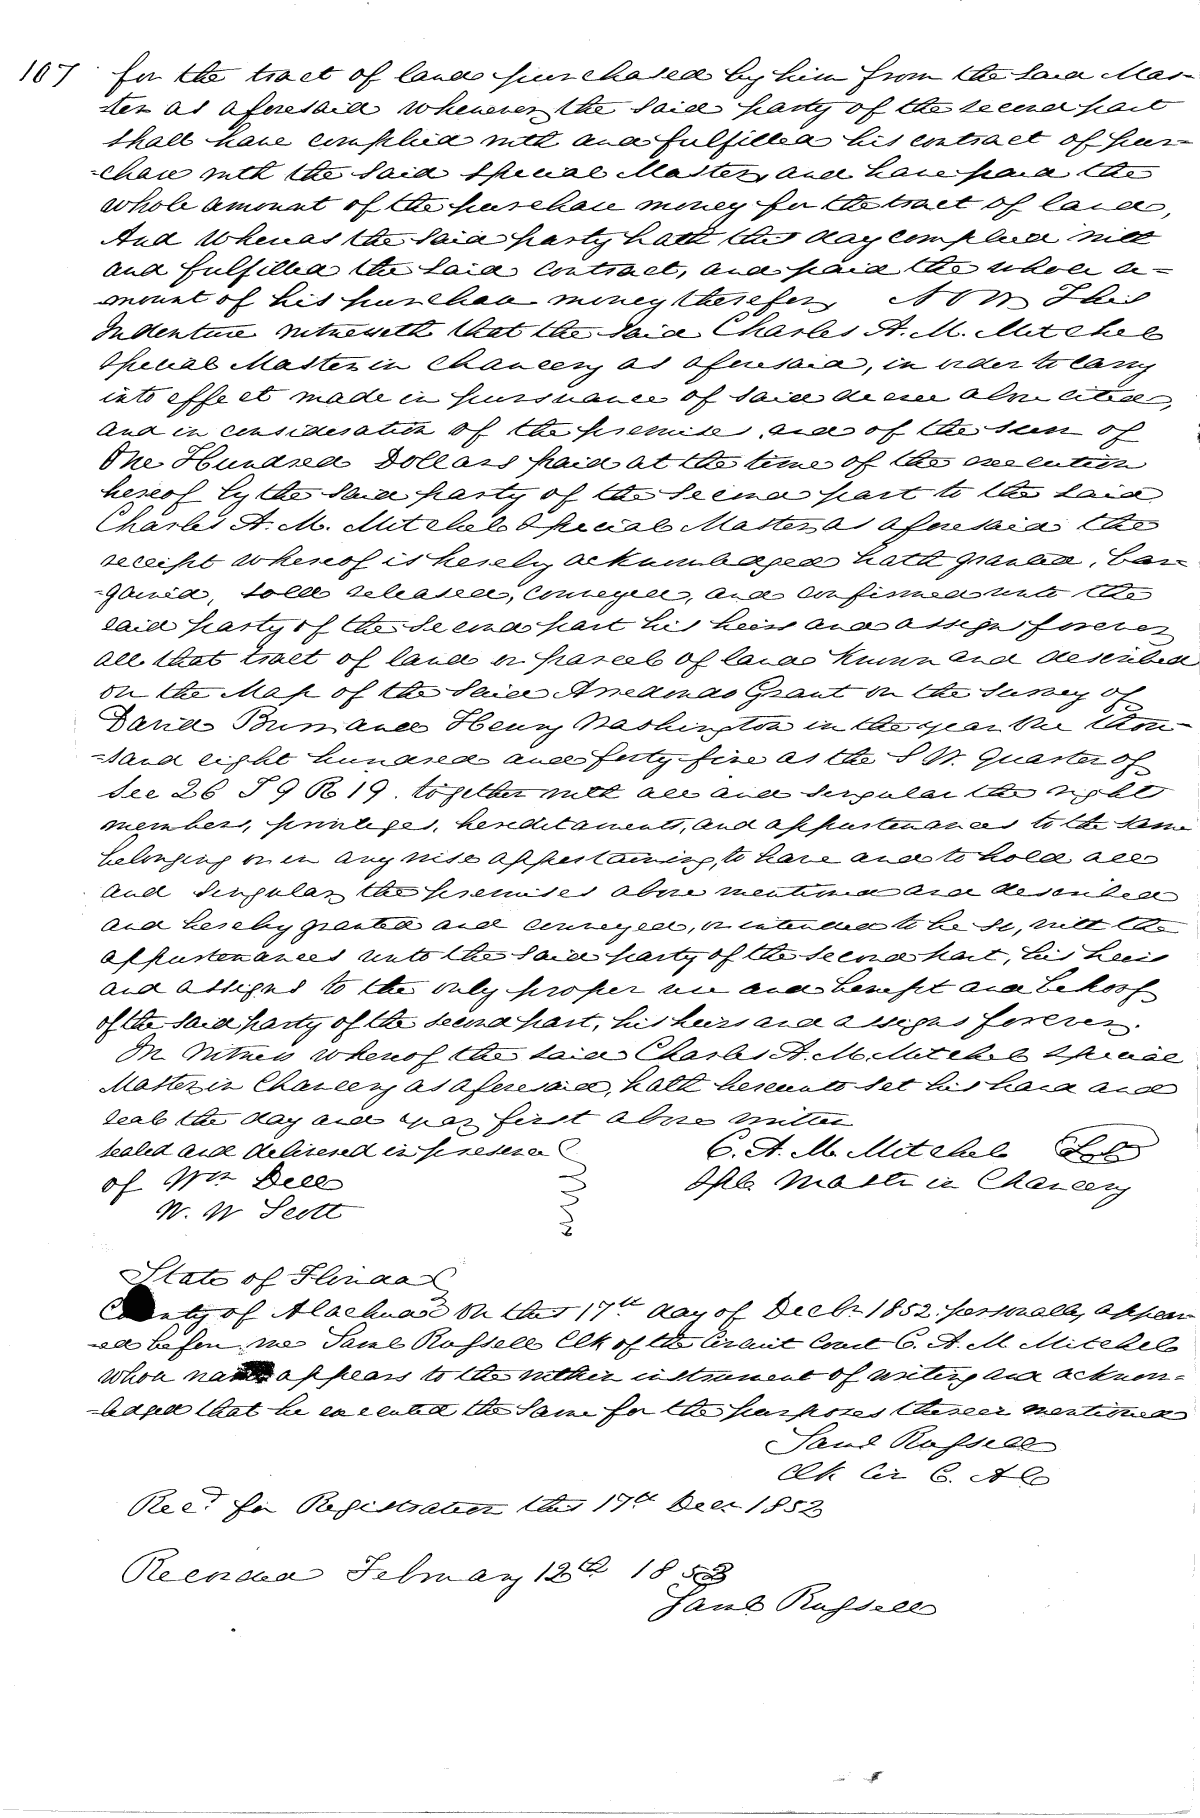 107 for the tract of land purchased by him from the said Mas-
ter as aforesaid whenever the said party of the second part
shall have complied with and fulfilled his contract of pur-
-chase with the said Special Master, and have paid the
whole amount of the purchase money for the tract of land,
And Whereas the said party hath this day complied with
and fulfilled the said contract, and paid the whole a-
-mount of his purchase money therefor, Now This
Indenture witnesseth that the said Charles A. M. Mitchel
Special Master in Chancery as aforesaid, in order to carry
into effect made in pursuance of said decree above cited,
and in consideration of the premises and of the sum of
One Hundred Dollars paid at the time of the execution
hereof by the said party of the second part to the said
Charles A. M. Mitchel Special Master as aforesaid the
receipt whereof is hereby acknowledged hath granted, bar-
-gained, sold released, conveyed, and confirmed unto the
said party of the second part his heirs and assigns forever
all that tract of land or parcel of land known and described
on the Map of the said Arredondo Grant on the survey of
David Burr and Henry Washington in the year One thou-
-sand eight hundred and forty five as the S W. Quarter of
Sec 26 T 9 R 19. together with all and singular the right
members, privileges, hereditaments, and appurtenances to the same
belonging or in any wise appertaining, to have and to hold all
and singular the premises above mentioned and described
and hereby granted and conveyed, or intended to be so, with the
appurtenances unto the said party of the second part, his heirs
and assigns to the only proper use and benefit and behoof
of the said party of the second part, his heirs and assigns forever.
In Witness whereof the said Charles A. M. Mitchel Special
Master in Chancery as aforesaid, hath hereunto set his hand and
seal the day and year first above written
sealed and delivered in presence C. A. M. Mitchel LS
of Wm Dell Spl. Mastr in Chancery
W. W Scott
State of Florida
County of Alachua On this 17th day of Decbr. 1852. personally appear-
-ed before me Saml Russell Clk of the Circuit Court C. A. M Mitchel
whose name appears to the within instrument of writing and acknow-
-ledged that he executed the same for the purposes therein mentioned
Saml Russell
Clk Cir C. A C
Recd. for Registration this 17th Decr 1852
Recorded February 12th 1853
Saml Russell